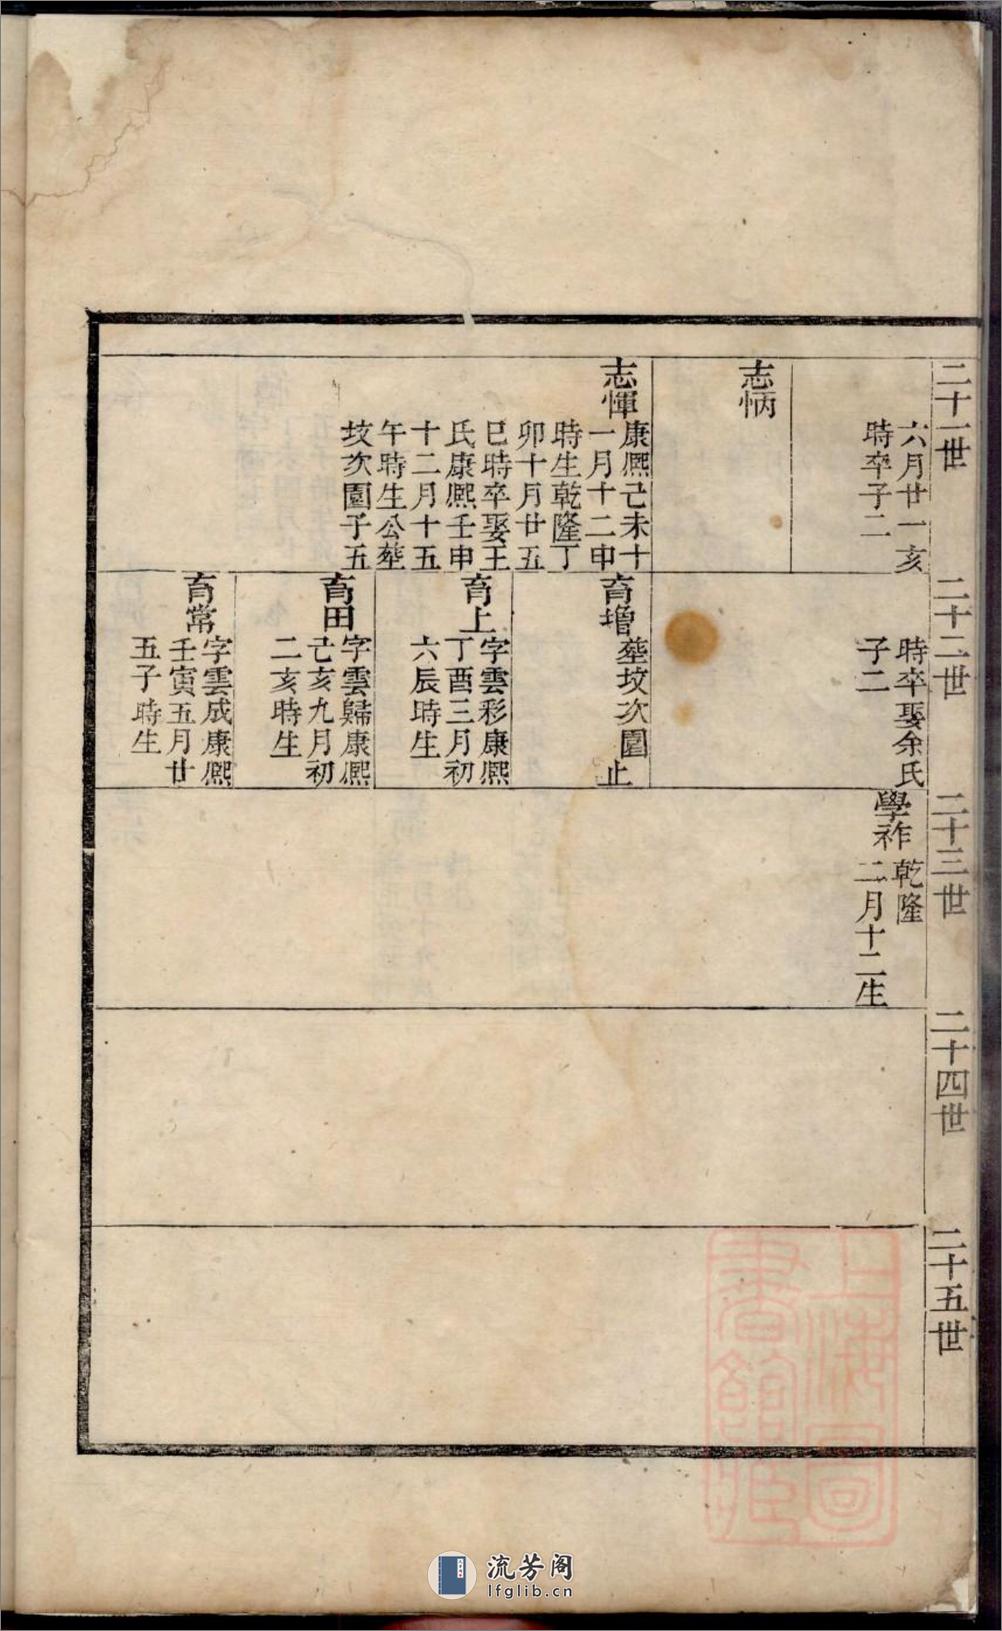 二十一世
六月廿一亥
時卒子二
志怲
志惲
康熙己未十
一月十二申
時生乾隆丁
卯十月廿五
巳時卒娶王
氏康熙壬申
十二月十五
午時生公塟
坟次園子五
二十二世
時卒娶余氏
子二
育增
塟坟次園
止
育上
字雲彩康熙
丁酉三月初
六辰時生
育田
字雲歸康熙
己亥九月初
二亥時生
育常
字雲成康熙
壬寅五月廿
五子時生
二十三世
學祚
乾隆
二月十二生
二十四世
二十五世
上海圖
書館藏
流芳阁
lfglib.cn